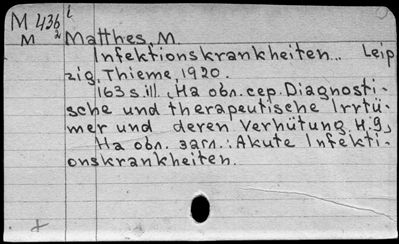 M 436 i
M 2 Matthes, M.
Infektionskrankheiten... Leip
zig, Thieme, 1920.
163 s. ill. „На обл. сер. Diagnosti-
sche und therapeutische Irrtü-
mer und deren Verhütung. H. 9„
На обл. загл.: Akute Infekti-
onskrankheiten.